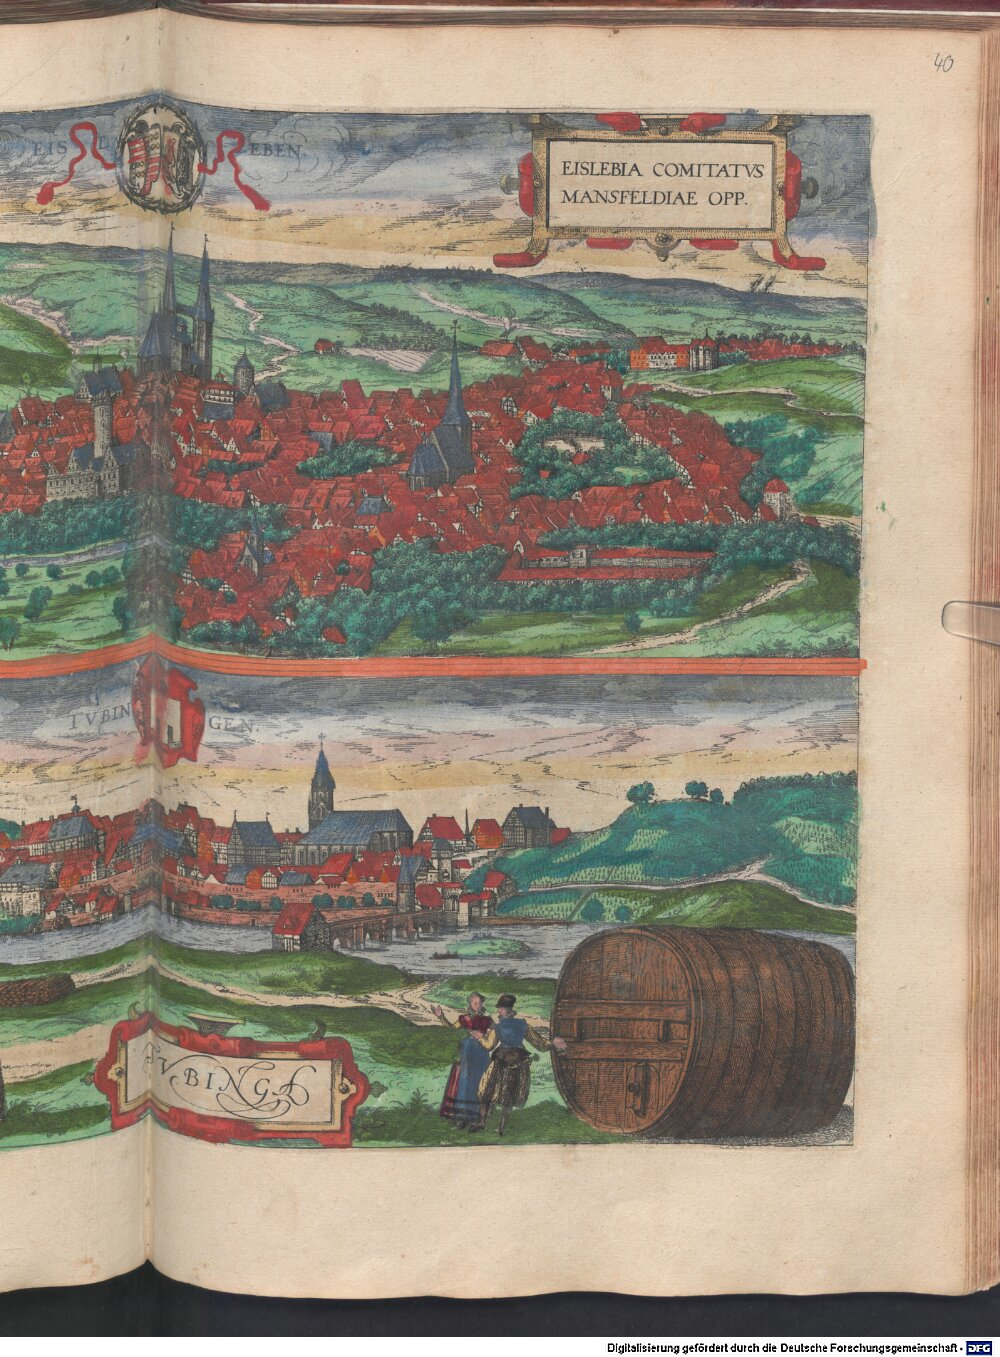 40
EISLEBEN.
EISLEBIA COMITATVS
MANSFELDIAE OPP.
TVBINGEN.
TVBINGA
Digitalisierung gefördert durch die Deutsche Forschungsgemeinschaft - DFG